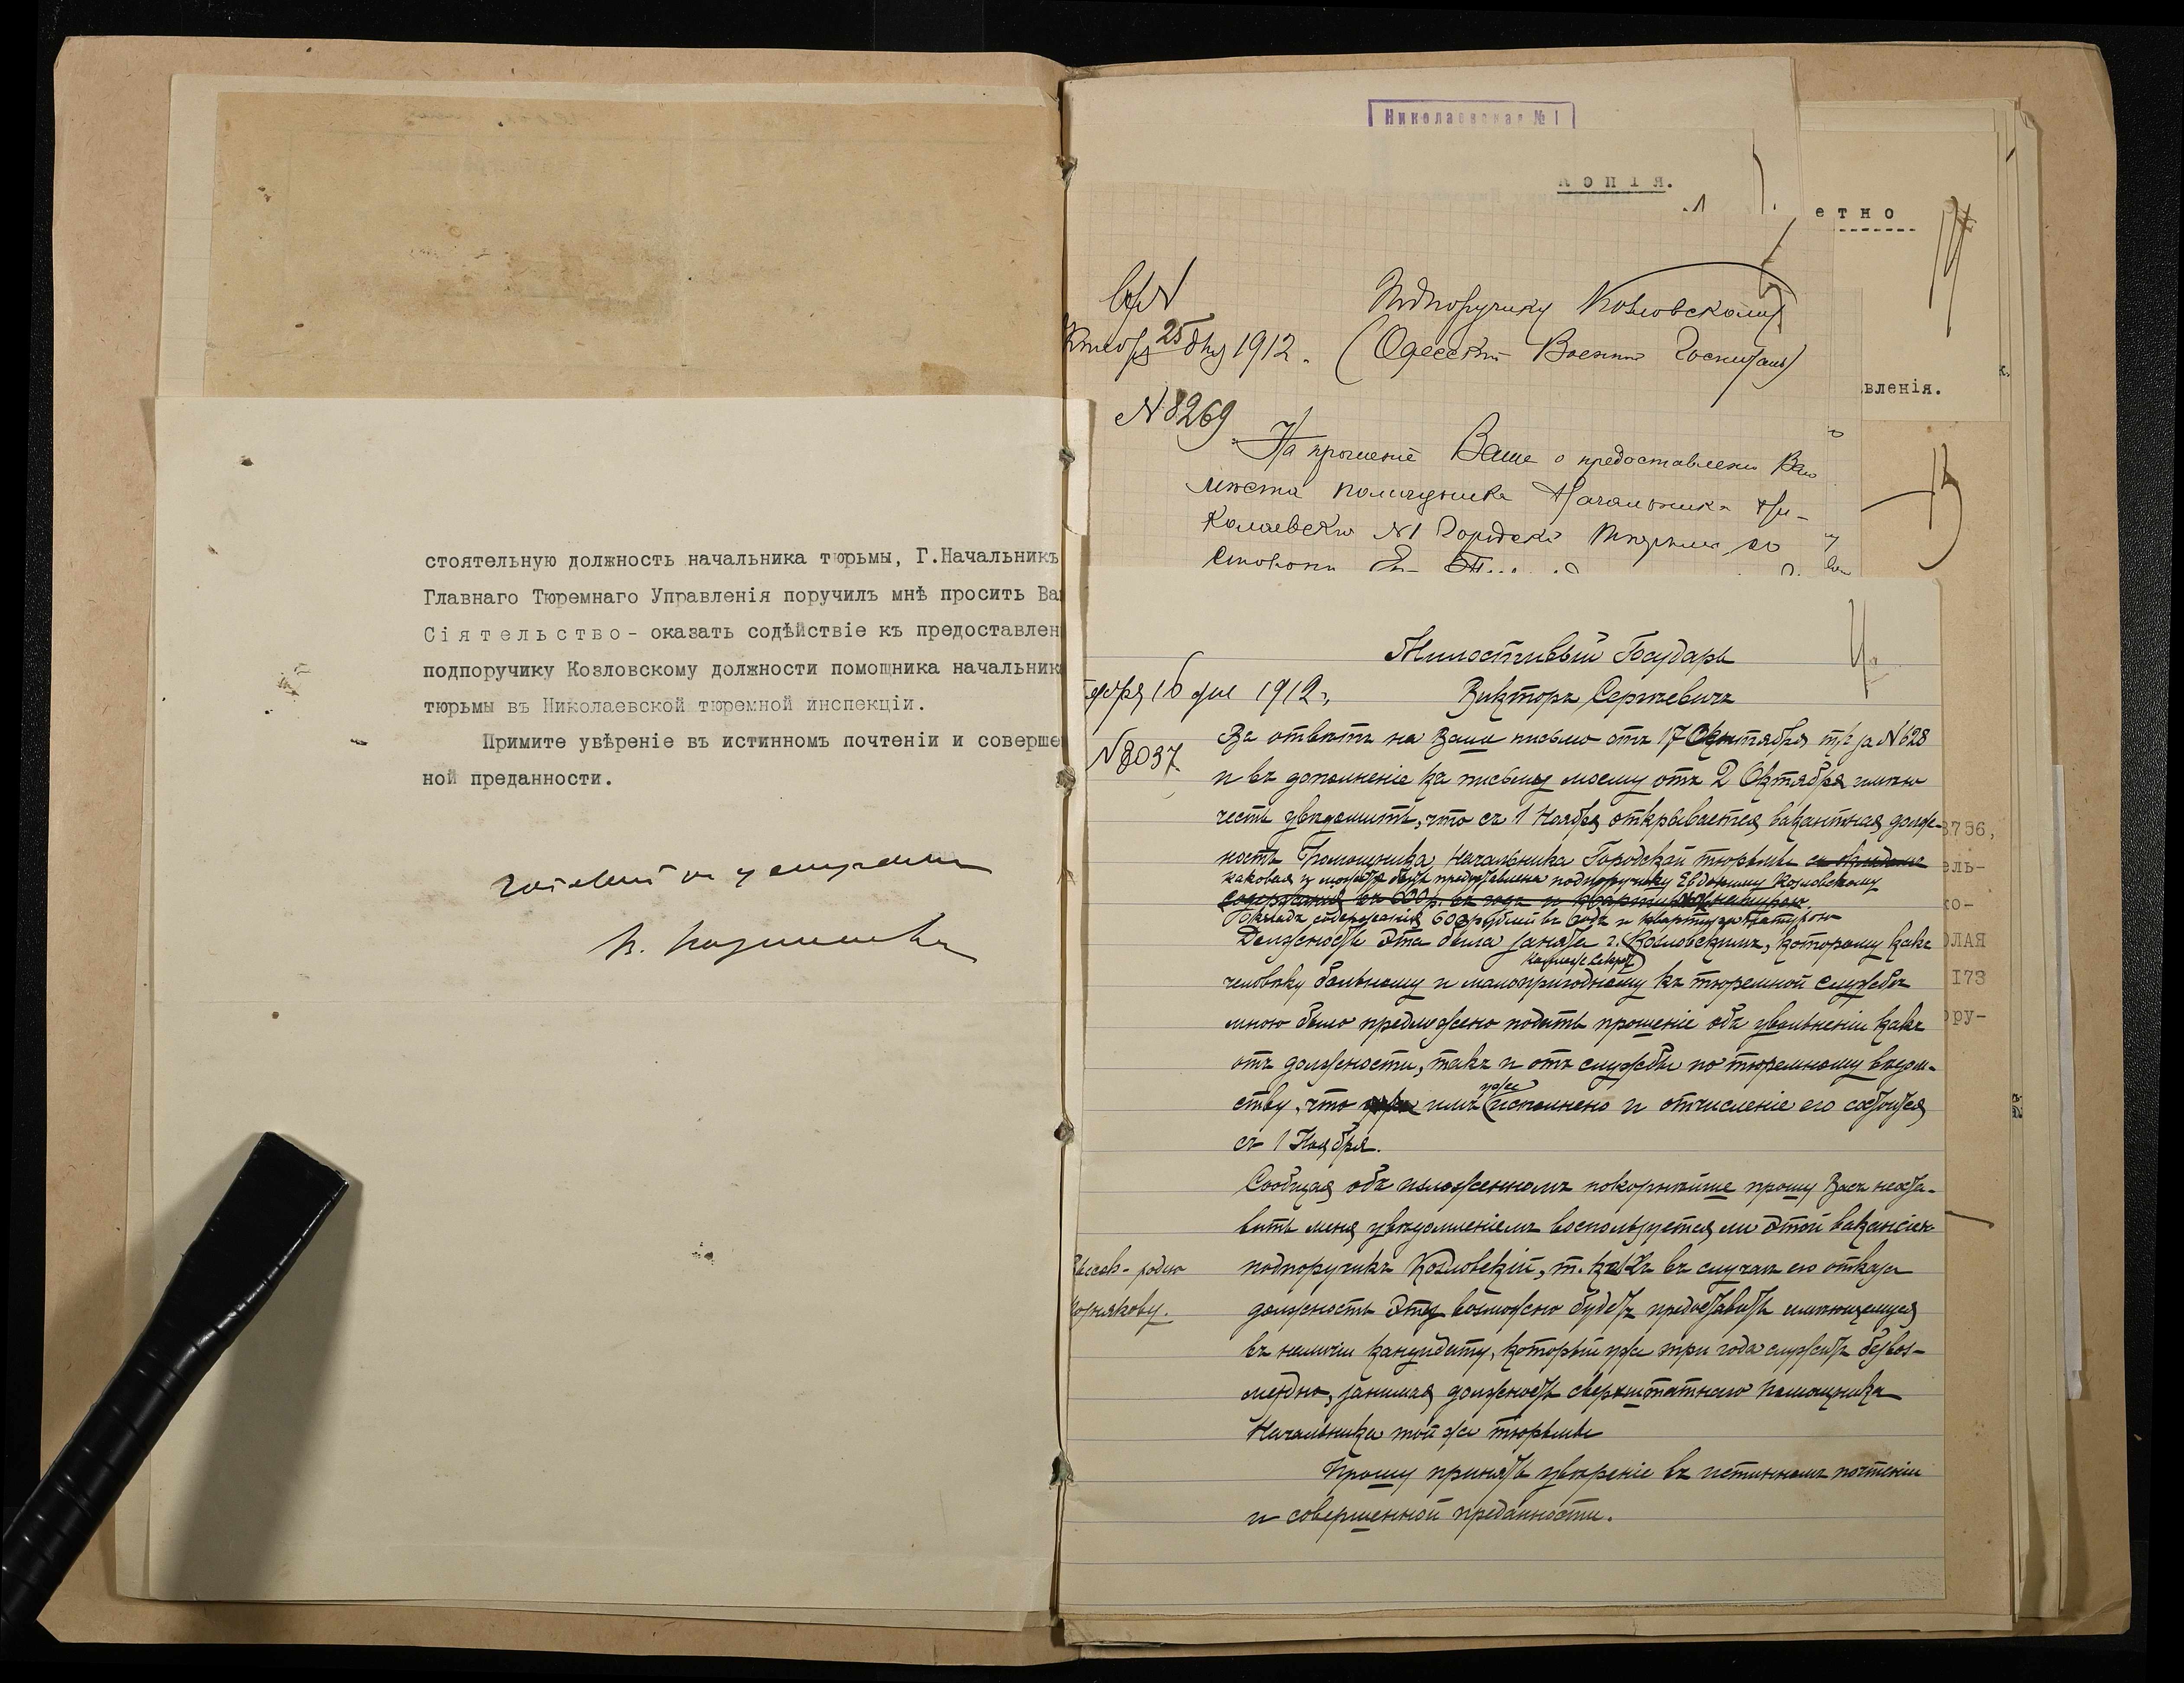 стоятельную должность начальника тюрьмы, Г.Начальникъ
Главнаго Тюремнаго Управленія поручилъ мнѣ просить Ва
Сіятельство- оказать содѣйствіе къ предоставлен
подпоручику Козловскому должности помощника начальник
тюрьмы въ Николаевской тюремной инспекціи.
Примите увѣреніе въ истинномъ почтеніи и соверше
ной преданности.
Николаевская № 1
Копія.
етно
вленія.
25 дня 1912.
Подпоручику Козловскому
(Одесскій Военный Госпиталь)
№ 8269
На прошеніе Ваше о предоставленіи Вам
мѣста помощника Начальника Ни-
колаевской №1 Городской Тюрьмы со
Милостивый Государь
16 дня 1912 г.
Викторъ Сергѣевичъ
№ 8037
На отвѣтъ на Ваше письмо отъ 17 Октября т/г за № 628
и въ дополненіе къ письму моему отъ 2 Октября имѣю
честь увѣдомить, что съ 1 Ноября открывается вакантная долж-
ность Помощника Начальника Городской тюрьмы
каковая и можетъ быть предоставлена подпоручику Евдокиму Козловскому
содержанія въ 600 р. въ годъ и квартира натурою.
Окладъ содержанія 600 рублей въ годъ и квартира натурою
Должность эта была занята г. Кословскимъ, которому какъ
человѣку больному и малопригодному къ тюремной службѣ
мною было предложено подать прошеніе объ увольненіи какъ
отъ должности, такъ и отъ службы по тюремному вѣдом-
уже
ству, что имъ исполнено и отчисленіе его состоится
съ 1 Ноября.
Сообщая объ изложенномъ покорнѣйше прошу Васъ неоста-
вить меня увѣдомленіемъ воспользуется ли этой вакансіею
подпоручикъ Козловскій, т. какъ въ случаѣ его отказа
должность эту возможно будетъ предоставить имѣющемуся
въ наличіи кандидату, который уже три года служитъ безвоз-
мездно, занимая должность сверхштатнаго помощника
Начальника той же тюрьмы
Прошу принять увѣреніе въ истинномъ почтеніи
и совершенной преданности.
3756,
ель-
ко-
ОЛАЯ
173
ору-